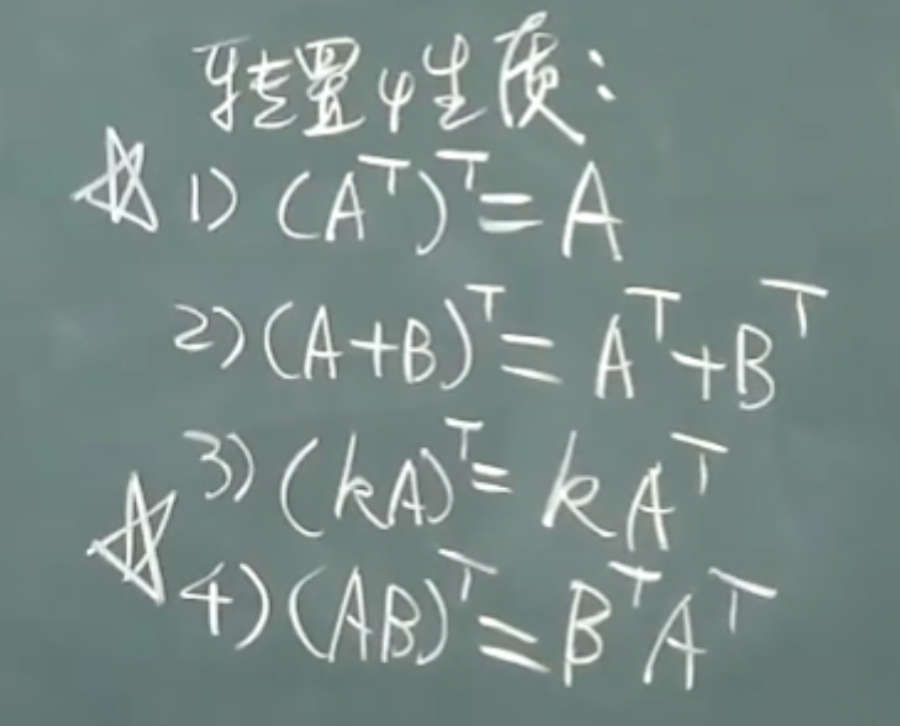 转置的性质:
☆ 1) (Aᵀ)ᵀ = A
2) (A+B)ᵀ = Aᵀ+Bᵀ
3) (kA)ᵀ = kAᵀ
☆ 4) (AB)ᵀ = BᵀAᵀ